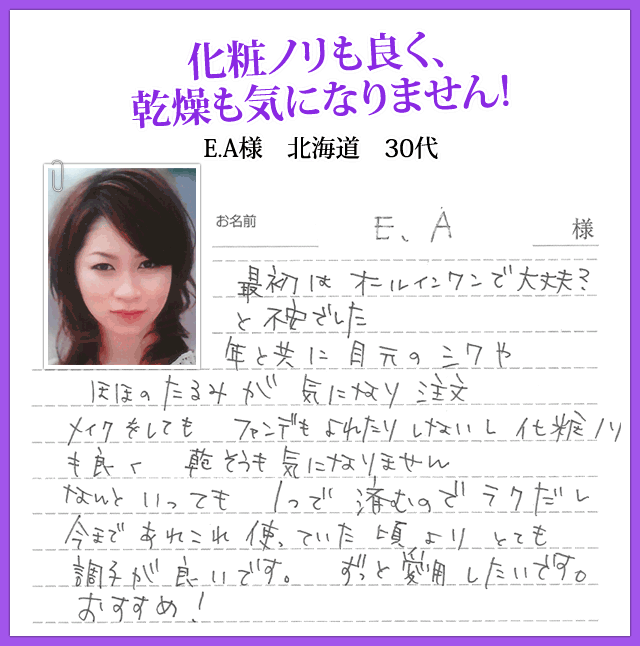 化粧ノリも良く、
乾燥も気になりません!
E.A様 北海道 30代
お名前 E、A 様
最初は オールインワンで大丈夫?
と不安でした
年と共に 目元のシワや
ほほのたるみが 気になり 注文
メイクをしても ファンデもよれたりしないし 化粧ノリ
も良く 乾そうも気になりません
なんといっても 1つで 済むのでラクだし
今まであれこれ使っていた頃より とても
調子が良いです。 ずっと愛用したいです。
おすすめ!